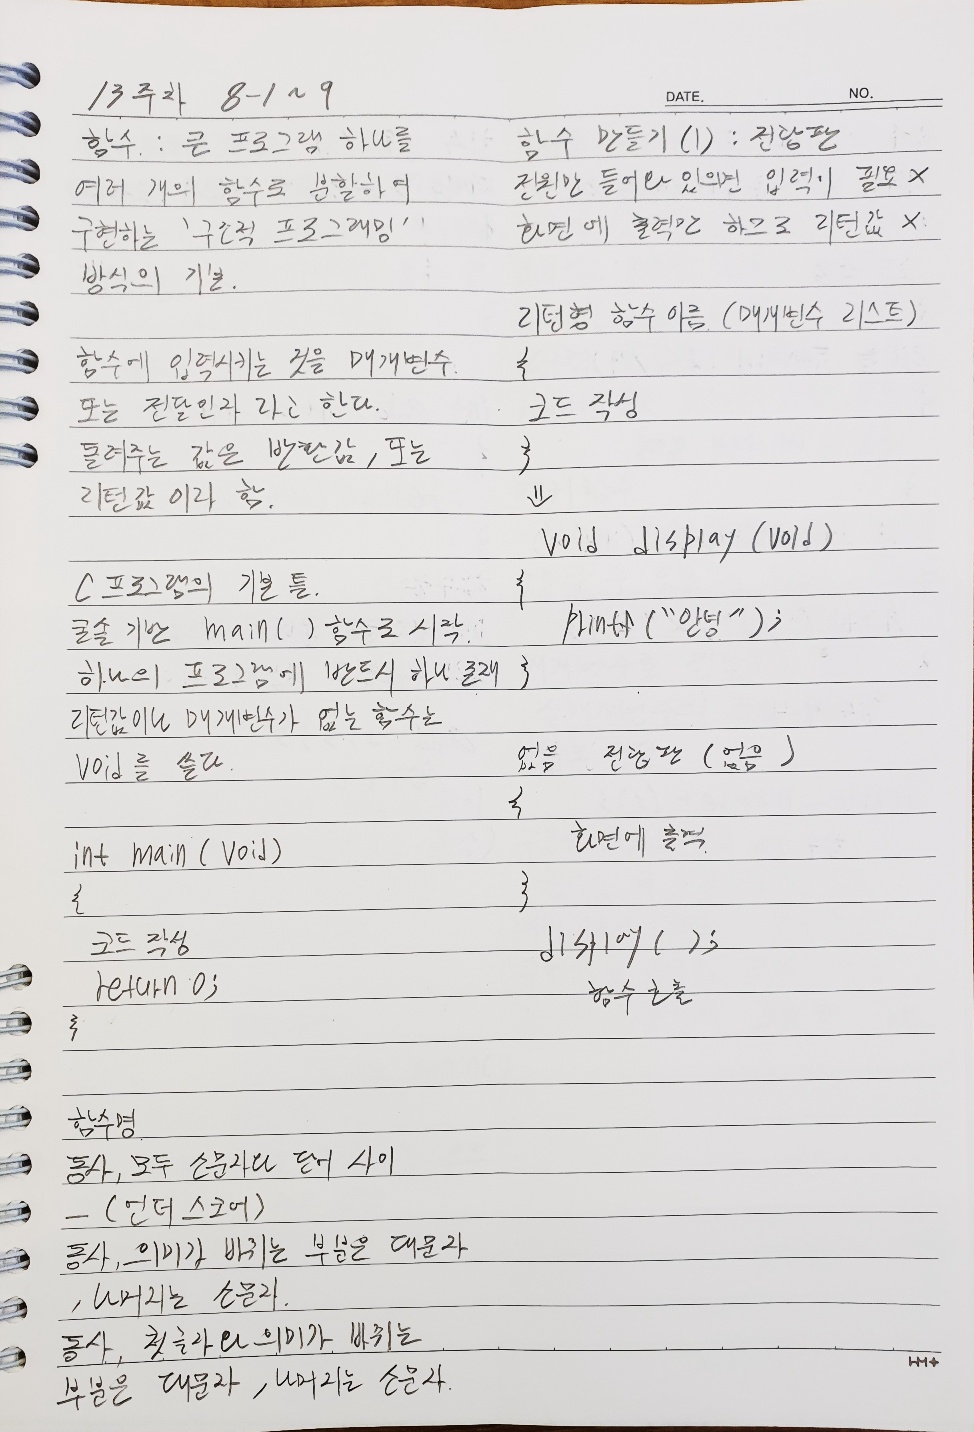 13주차 8-1~9
DATE.
NO.
함수 : 큰 프로그램 하나를
여러 개의 함수로 분할하여
구현하는 '구조적 프로그래밍'
방식의 기본.
함수에 입력시키는 것을 매개변수
또는 전달인자 라고 한다.
돌려주는 값은 반환값, 또는
리턴값 이라 함.
C 프로그램의 기본 틀.
콘솔 기반 main( ) 함수로 시작.
하나의 프로그램에 반드시 하나 존재
리턴값이나 매개변수가 없는 함수는
void를 쓴다.
int main(void)
{
코드 작성
return 0;
}
함수명
동사, 모두 소문자나 단어 사이
_ (언더 스코어)
동사, 의미가 바뀌는 부분은 대문자
, 나머지는 소문자.
동사, 첫글자와 의미가 바뀌는
부분은 대문자, 나머지는 소문자.
함수 만들기(1) : 전광판
전원만 들어와 있으면 입력이 필요 X
화면에 출력만 하므로 리턴값 X
리턴형 함수이름 (매개변수 리스트)
{
코드 작성
}
⇓
void display(void)
{
printf("안녕");
}
없음 전광판 (없음)
{
화면에 출력
}
display( );
함수 호출